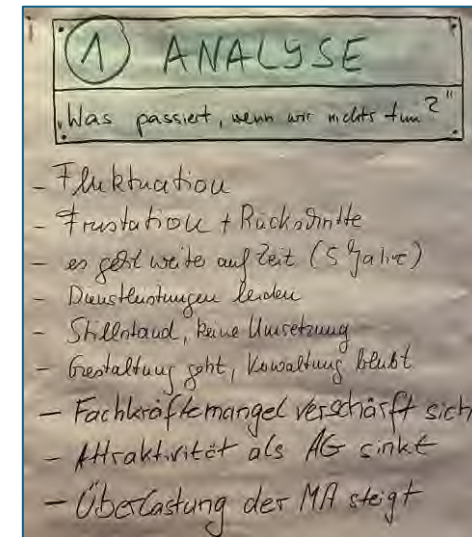 1 ANALYSE
„Was passiert, wenn wir nichts tun?"
- Fluktuation
- Frustation + Rückschritte
- es geht weiter auf Zeit (5 Jahre)
- Dienstleistungen leiden
- Stillstand, keine Umsetzung
- Gestaltung geht, Verwaltung bleibt
- Fachkräftemangel verschärft sich
- Attraktivität als AG sinkt
- Überlastung der MA steigt